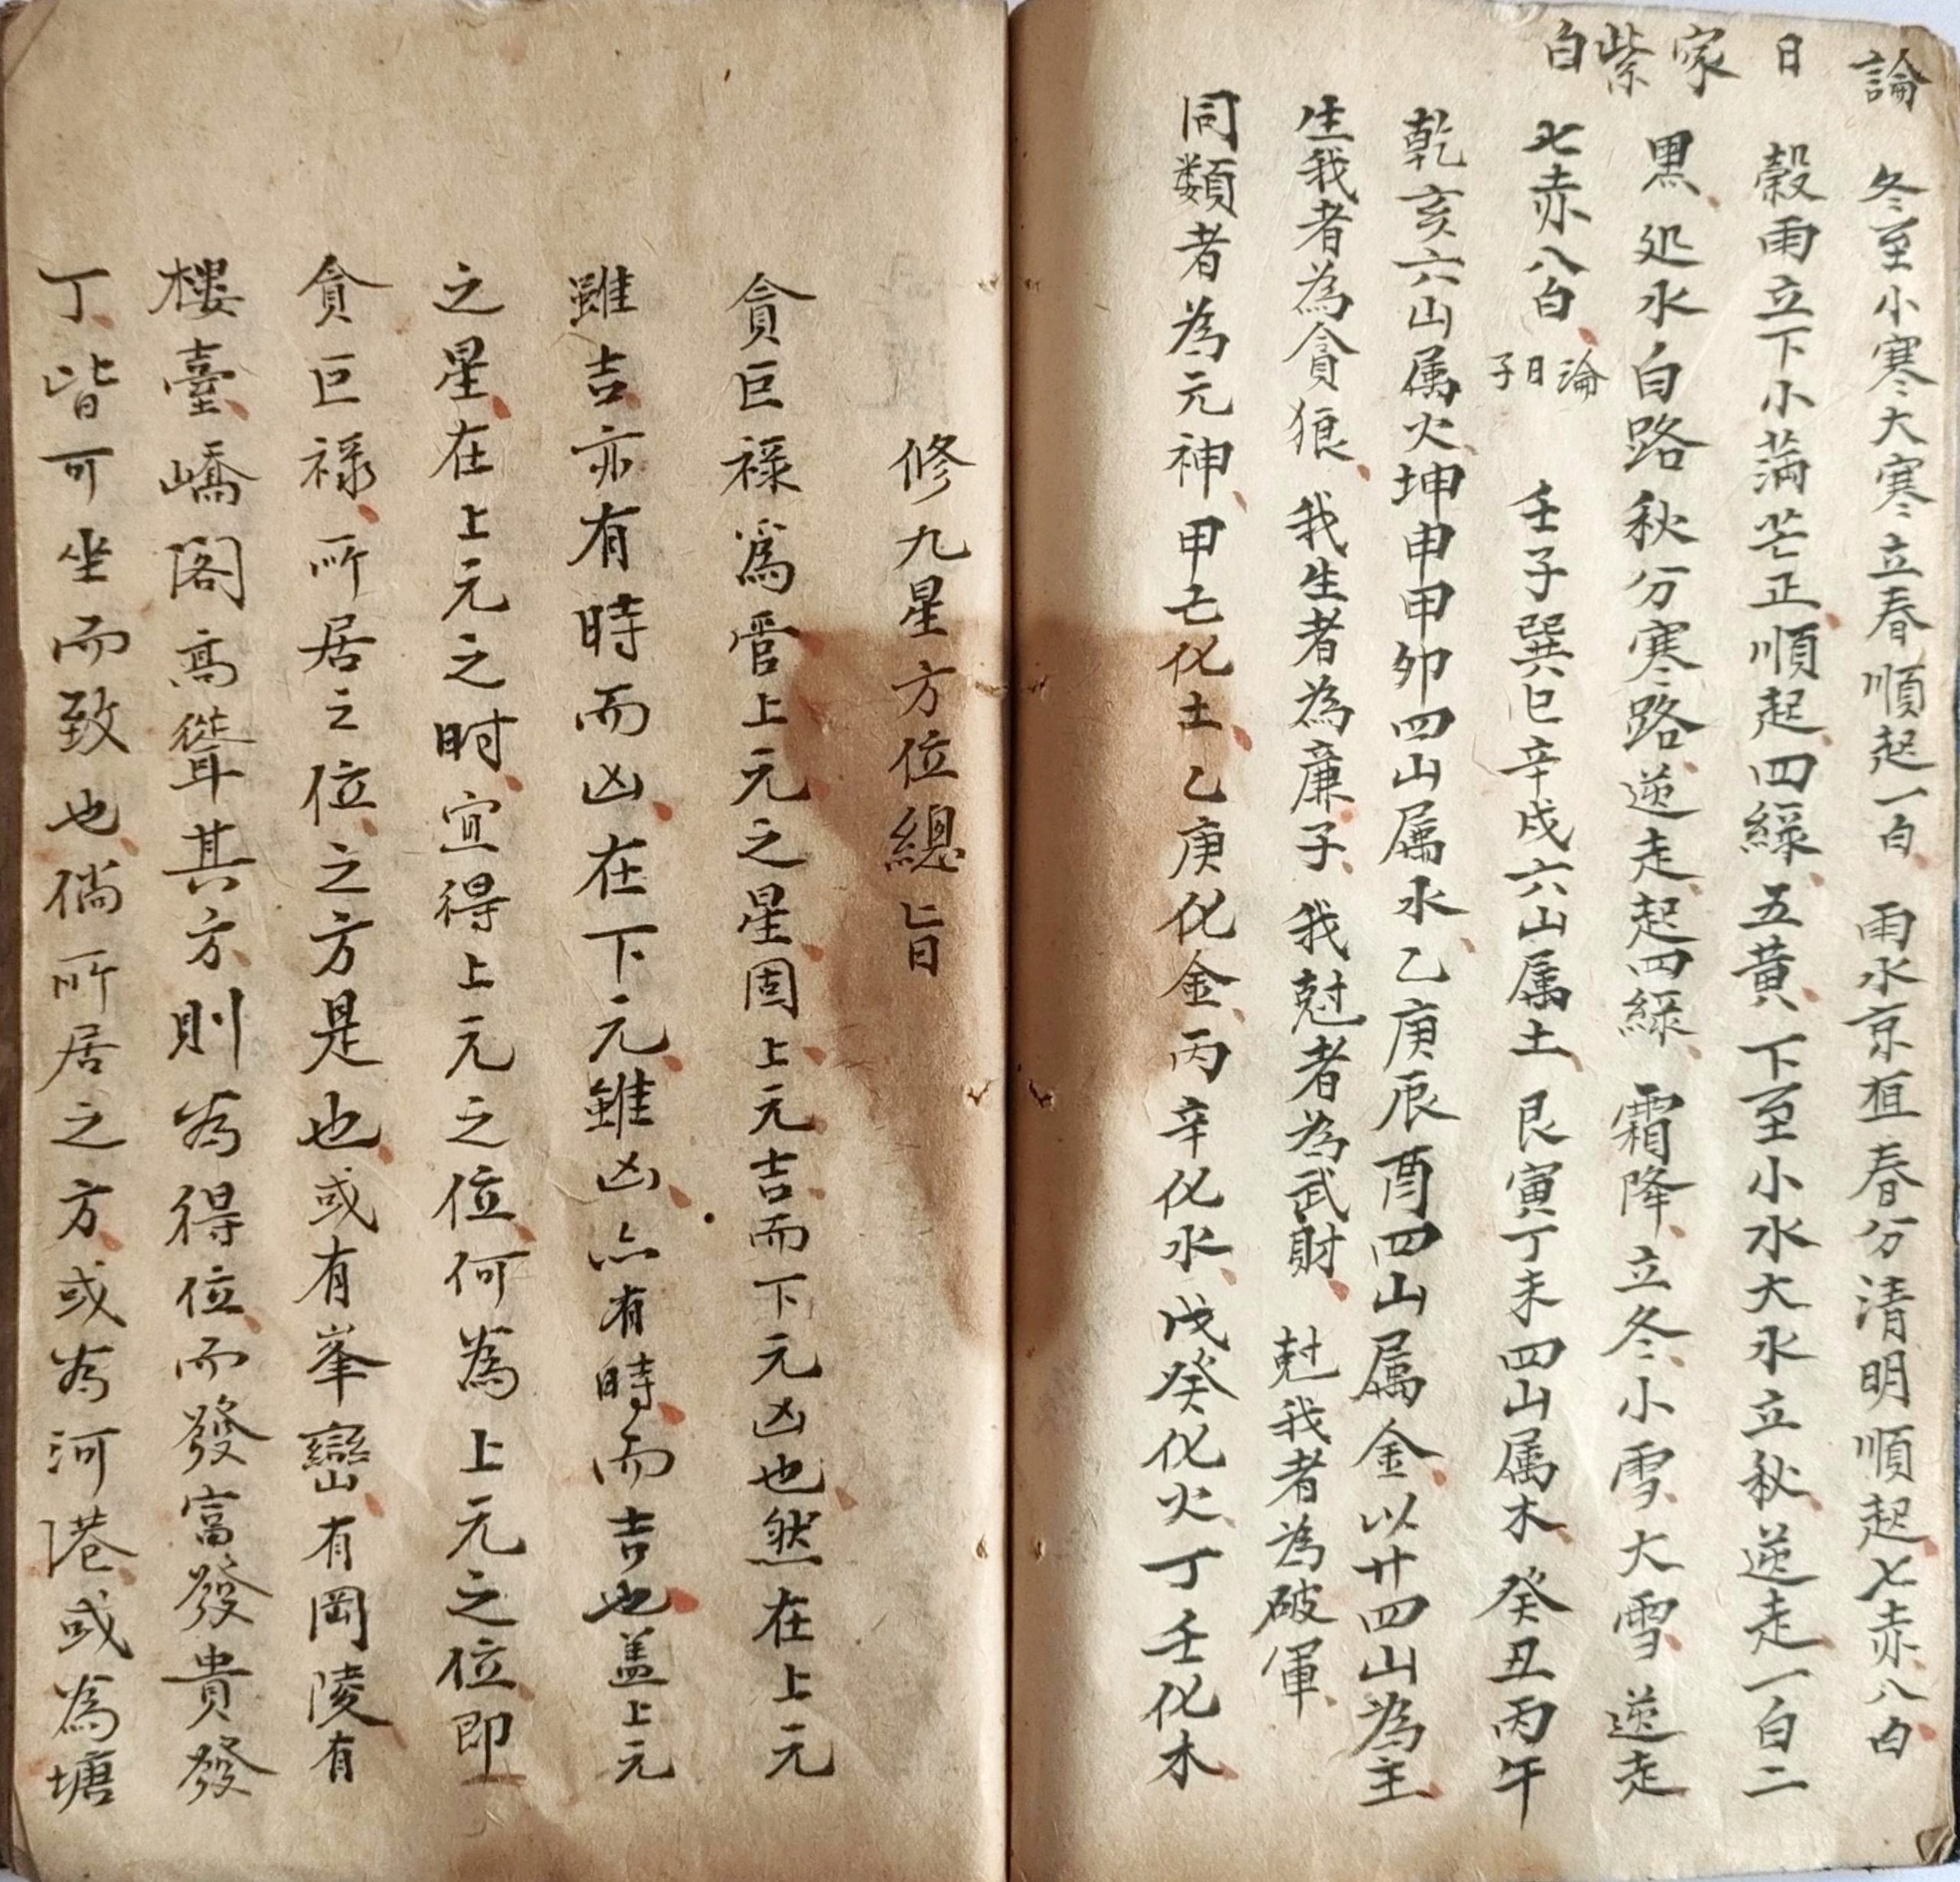 論日家紫白
冬至小寒大寒立春順起一白雨水京直春分清明順起七赤八白
榖雨立下小滿芒正順起四綠五黃下至小水大水立秋逆走一白二
黑処水白路秋分寒路逆走起四綠霜降立冬小雪大雪逆走
七赤八白
論日子
壬子巽巳辛戌六山属土艮寅丁未四山属木癸丑丙午
乾亥六山属火坤申甲卯四山属水乙庚辰酉四山属金以廿四山為主
生我者為貪狼我生者為廉子我尅者為武財尅我者為破軍
同類者為元神甲己化土乙庚化金丙辛化水戊癸化火丁壬化木
修九星方位總旨
貪巨祿爲管上元之星固上元吉而下元凶也然在上元
雖吉亦有時而凶在下元雖凶亦有時而吉也盖上元
之星在上元之时宜得上元之位何為上元之位即
貪巨祿所居之位之方是也或有峯巒有岡陵有
樓臺嶠閣高聳其方則为得位而發富發貴發
丁皆可坐而致也倘所居之方或为河港或為塘